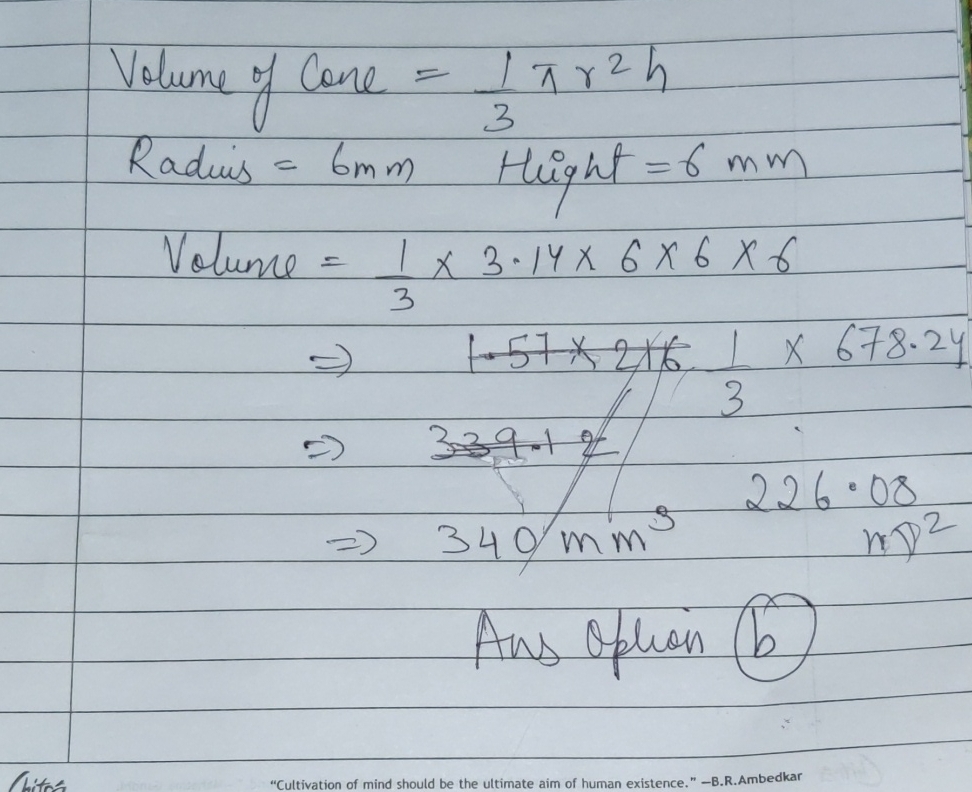 Volume of Cone = 1/3 π r 2 h
Radius = 6mm Height = 6 mm
Volume = 1/3 x 3.14 x 6 x 6 x 6
=> 1.57 x 216 1/3 x 678.24
=> 339.12
226.08
=> 340 mm³ mm²
Ans Option b
"Cultivation of mind should be the ultimate aim of human existence." —B.R.Ambedkar